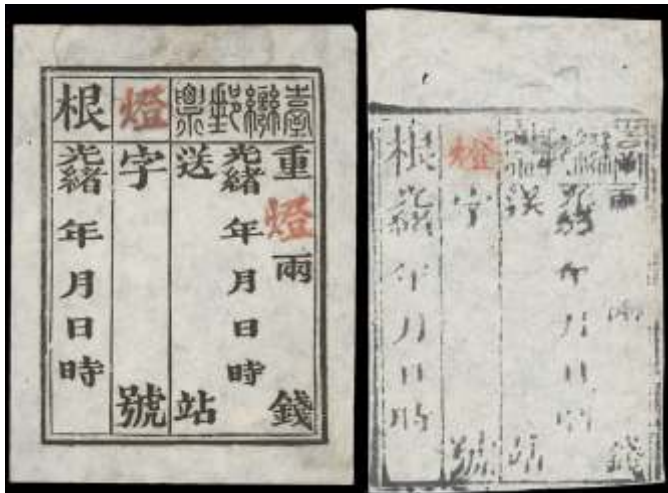 臺灣郵票
重燈兩錢
光緒年月日時
送站
燈字號
根
光緒年月日時
兩錢
年月日時
送站
燈字號
根
光緒年月日時